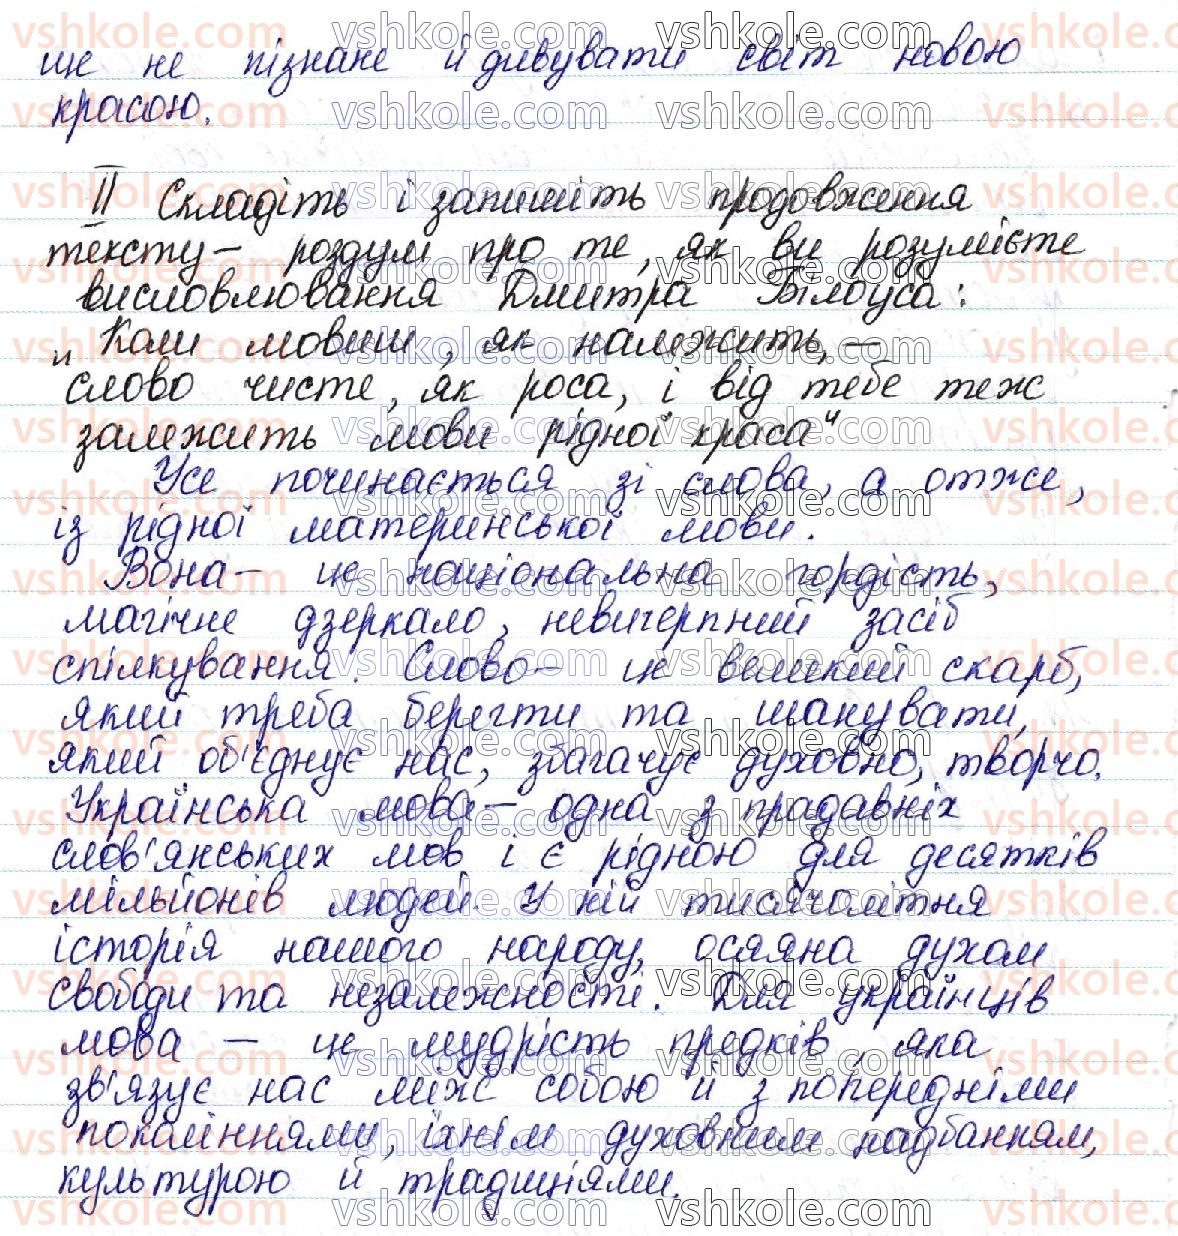 ще не пізнане й дивувати світ новою
красою.
II Складіть і запишіть продовження
тексту – роздум про те, як ви розумієте
висловлювання Дмитра Білоуса:
„Коли мовиш, як належить, –
слово чисте, як роса, і від тебе теж
залежить мови рідної краса“
Усе починається зі слова, а отже,
із рідної материнської мови.
Вона – це національна гордість,
магічне дзеркало, невичерпний засіб
спілкування. Слово – це великий скарб,
який треба берегти та шанувати,
який об'єднує нас, збагачує духовно, творчо.
Українська мова – одна з прадавніх
слов'янських мов і є рідною для десятків
мільйонів людей. У ній тисячолітня
історія нашого народу, осяяна духом
свободи та незалежності. Для українців
мова – це мудрість предків, яка
зв'язує нас між собою й з попередніми
поколіннями, їхнім духовним надбанням,
культурою й традиціями.
vshkole.com vshkole.com vshkole.com vshkole.c